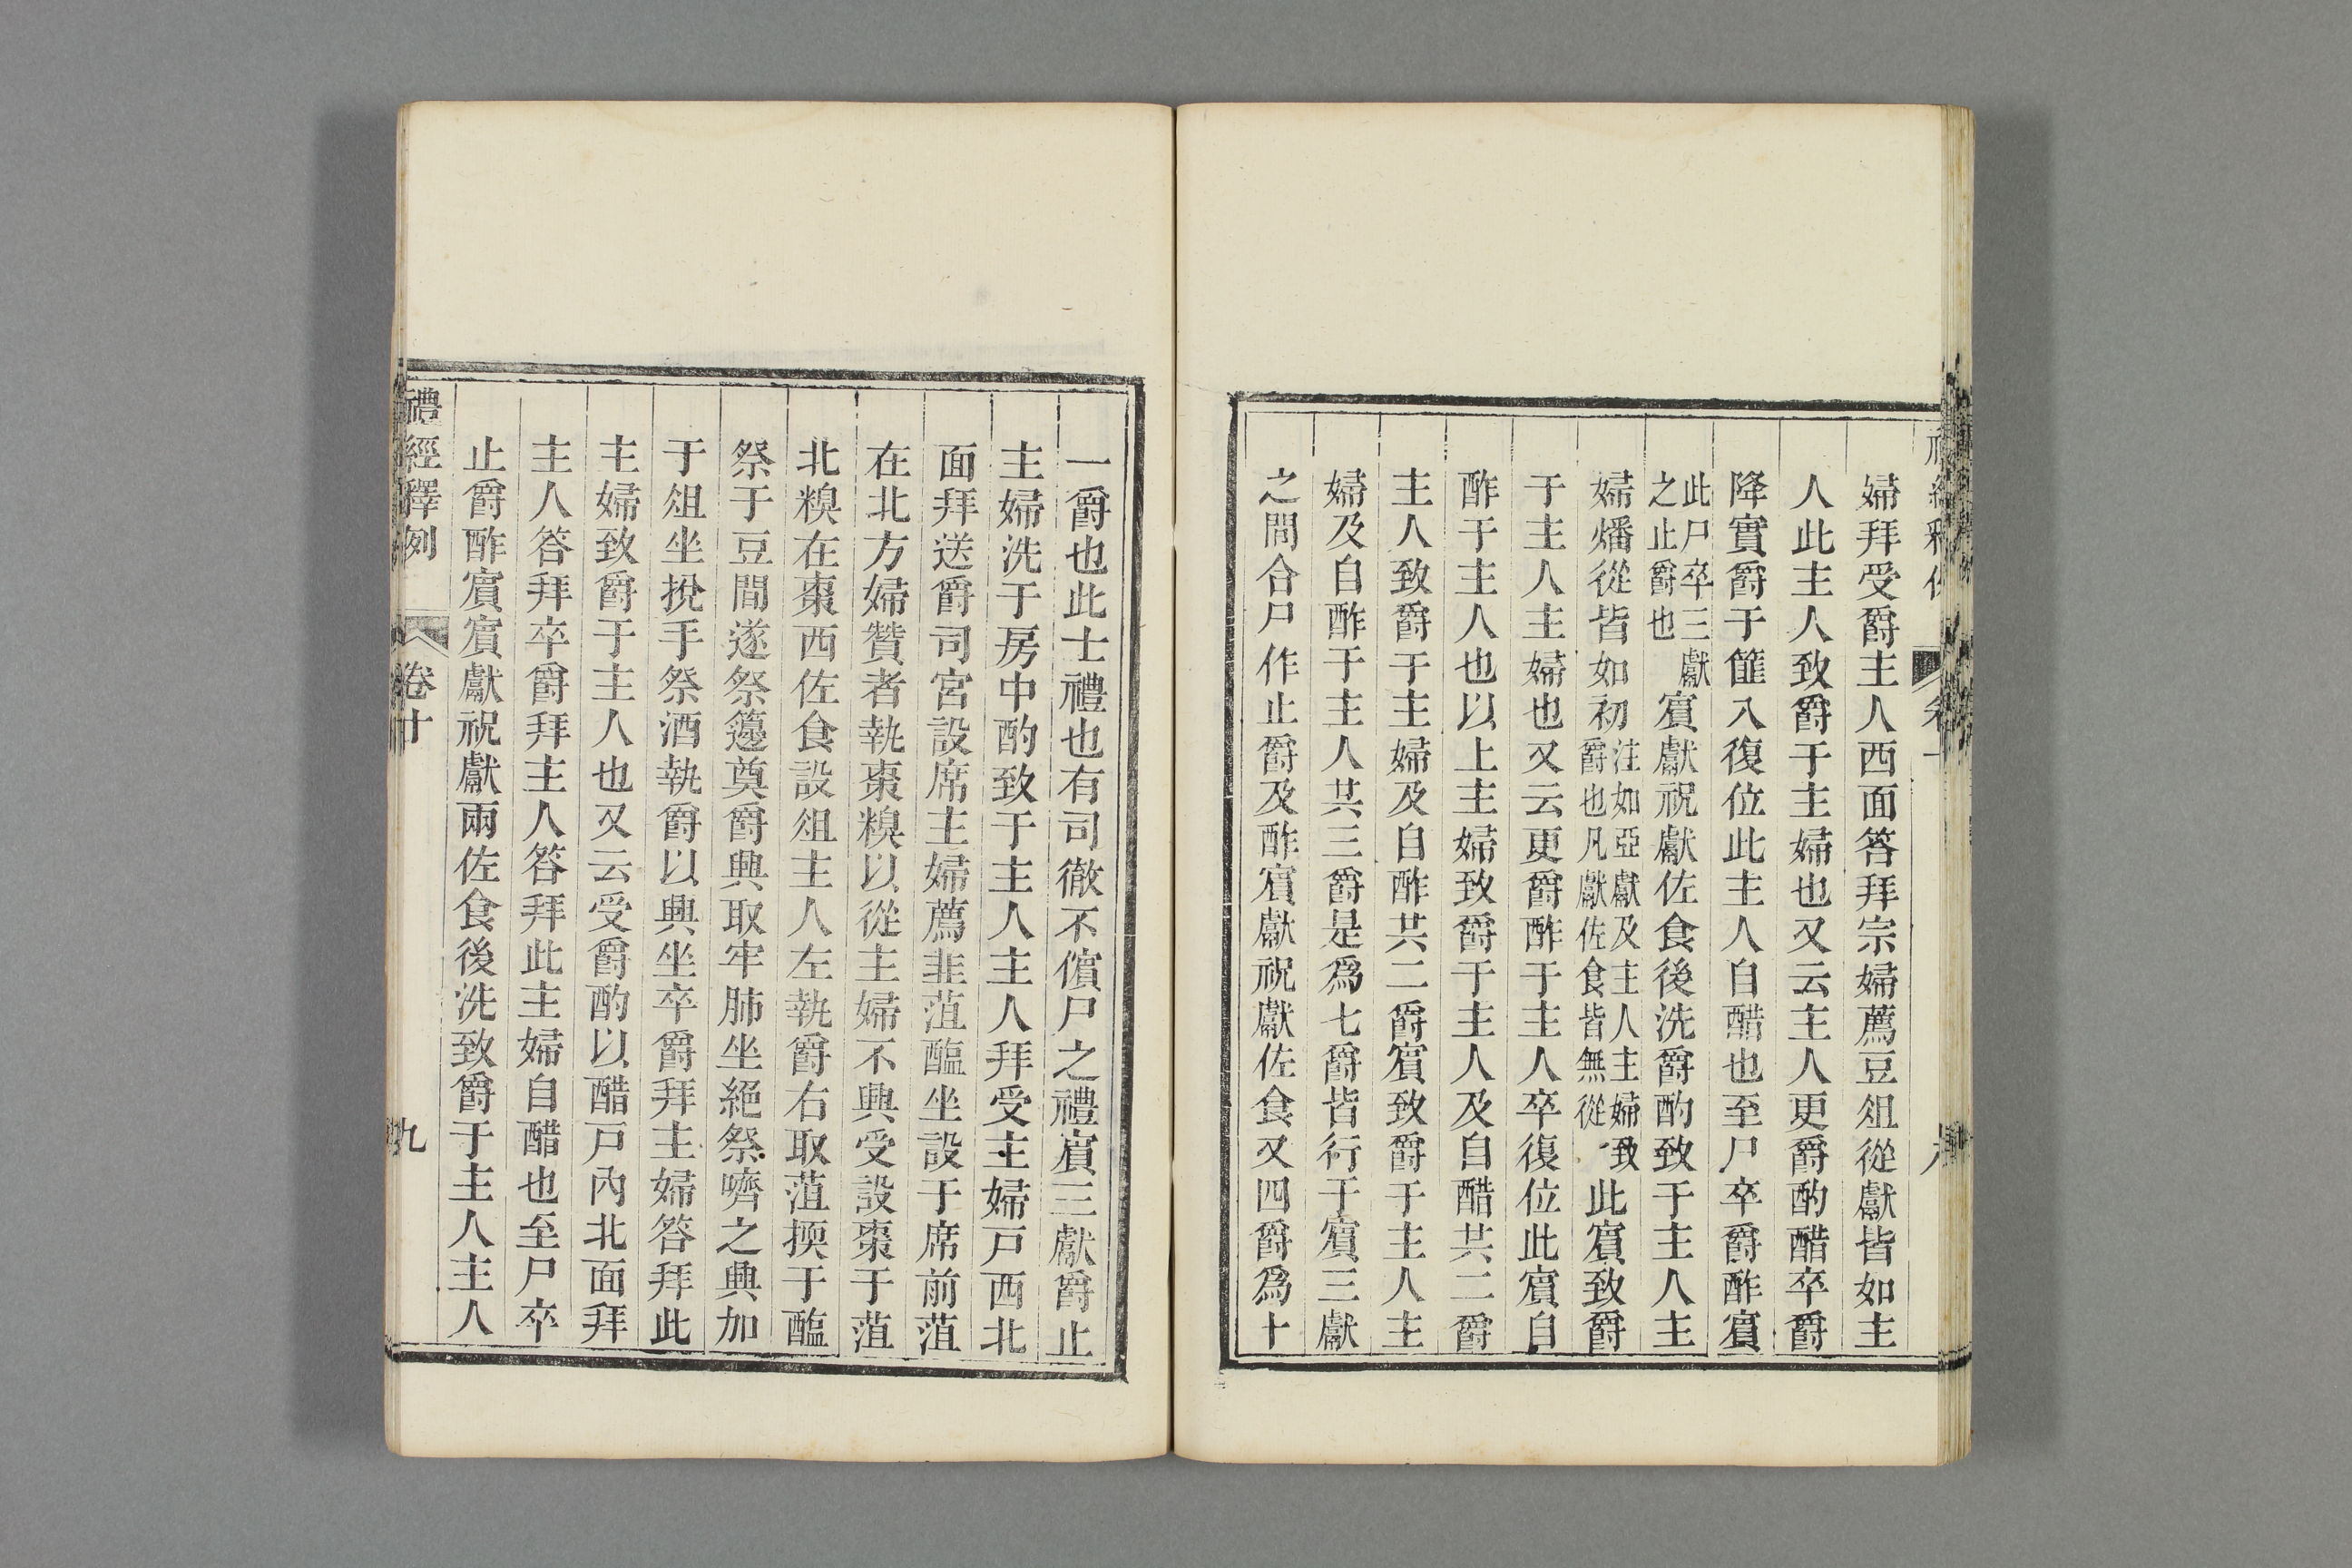 婦拜受爵主人西面答拜宗婦薦豆俎從獻皆如主
人此主人致爵于主婦也又云主人更爵酌醋卒爵
降實爵于篚入復位此主人自醋也至尸卒爵酢賔
此尸卒三獻
之止爵也
賔獻祝獻佐食後洗爵酌致于主人主
婦燔從皆如初
注如亞獻及主人主婦致
爵也凡獻佐食皆無從
此賔致爵
于主人主婦也又云更爵酢于主人卒復位此賔自
酢于主人也以上主婦致爵于主人及自醋共二爵
主人致爵于主婦及自酢共二爵賔致爵于主人主
婦及自酢于主人共三爵是爲七爵皆行于賔三獻
之間合尸作止爵及酢賔獻祝獻佐食又四爵爲十
一爵也此士禮也有司徹不儐尸之禮賔三獻爵止
主婦洗于房中酌致于主人主人拜受主婦戸西北
面拜送爵司宮設席主婦薦韭菹醢坐設于席前菹
在北方婦贊者執棗糗以從主婦不興受設棗于菹
北糗在棗西佐食設俎主人左執爵右取菹擩于醢
祭于豆間遂祭籩奠爵興取牢肺坐絕祭嚌之興加
于俎坐挩手祭酒執爵以興坐卒爵拜主婦答拜此
主婦致爵于主人也又云受爵酌以醋戸內北面拜
主人答拜卒爵拜主人答拜此主婦自醋也至尸卒
止爵酢賔賔獻祝獻兩佐食後洗致爵于主人主人
禮經釋例
卷十
九